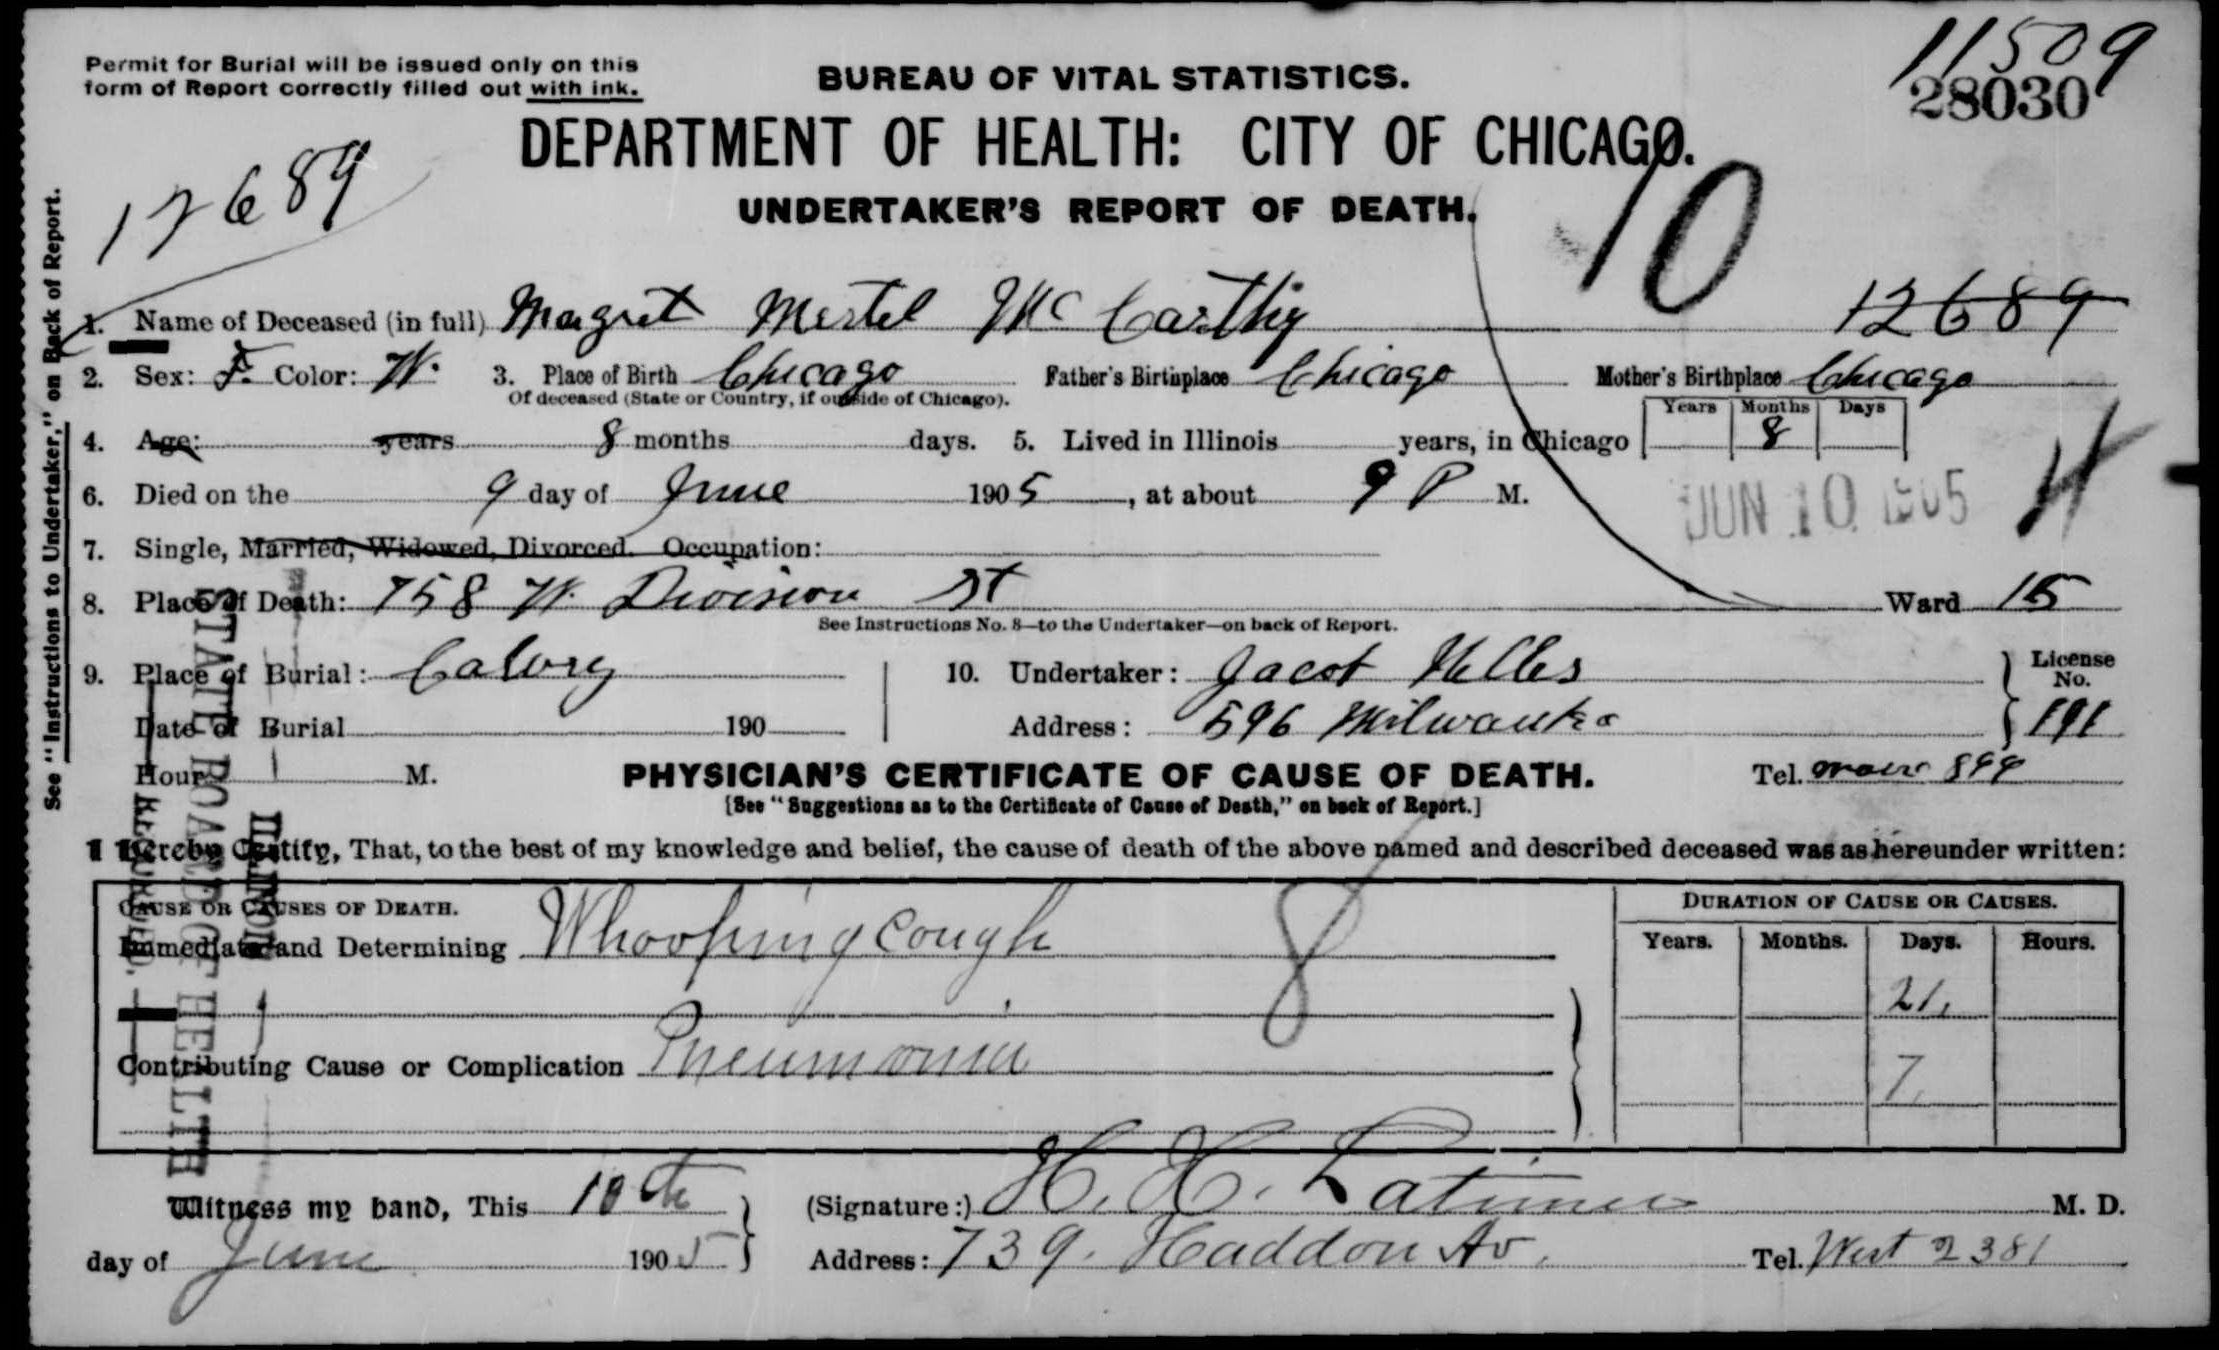 11509
28030
Permit for Burial will be issued only on this
form of Report correctly filled out with ink.
BUREAU OF VITAL STATISTICS.
DEPARTMENT OF HEALTH: CITY OF CHICAGO.
UNDERTAKER'S REPORT OF DEATH.
12689
10
See "Instructions to Undertaker," on Back of Report.
1. Name of Deceased (in full) Magret Mertel McCarthy 12689
2. Sex: F. Color: W. 3. Place of Birth Chicago Father's Birthplace Chicago Mother's Birthplace Chicago
Of deceased (State or Country, if outside of Chicago).
Years Months Days
4. Age: years 8 months days. 5. Lived in Illinois years, in Chicago 8
6. Died on the 9 day of June 1905, at about 9 P M.
JUN 10 1905
7. Single, Married, Widowed, Divorced. Occupation:
8. Place of Death: 758 W. Division St Ward 15
See Instructions No. 8—to the Undertaker—on back of Report.
9. Place of Burial: Calvry 10. Undertaker: Jacob License No.
Date of Burial 190 Address: 596 Milwaukee 191
Hour M. PHYSICIAN'S CERTIFICATE OF CAUSE OF DEATH. Tel. main
[See "Suggestions as to the Certificate of Cause of Death," on back of Report.]
I Hereby Certify, That, to the best of my knowledge and belief, the cause of death of the above named and described deceased was as hereunder written:
CAUSE OR CAUSES OF DEATH. DURATION OF CAUSE OR CAUSES.
Immediate and Determining Whooping Cough 8 Years. Months. Days. Hours.
21.
Contributing Cause or Complication Pneumonia 7.
Witness my hand, This 10th (Signature:) H. H. Latimer M. D.
day of June 1905 Address: 739. Haddon Av. Tel. West 2381
STATE BOARD OF HEALTH
ILLINOIS
REQUIRED.